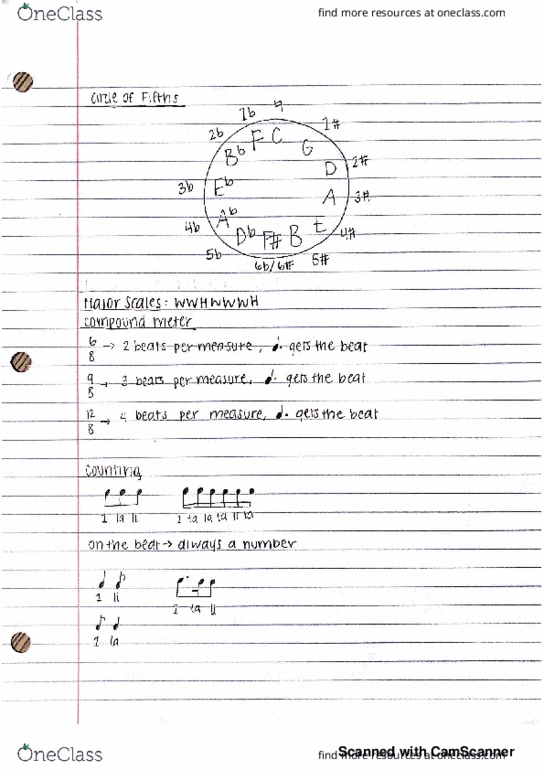 OneClass
find more resources at oneclass.com
Circle of Fifths
1b
2b
1#
Bb F C G
D 2#
3b Eb
A 3#
4b Ab
Db F# B E 4#
5b
6b/6# 5#
Major Scales: WWHWWWH
Compound meter
6
8 → 2 beats per measure, ♩. gets the beat
9
8 → 3 beats per measure, ♩. gets the beat
12
8 → 4 beats per measure, ♩. gets the beat
Counting
1 la li 1 ta la ta li ta
on the beat → always a number
1 li 1 ta li
1 la
OneClass
find more resources at oneclass.com
Scanned with CamScanner